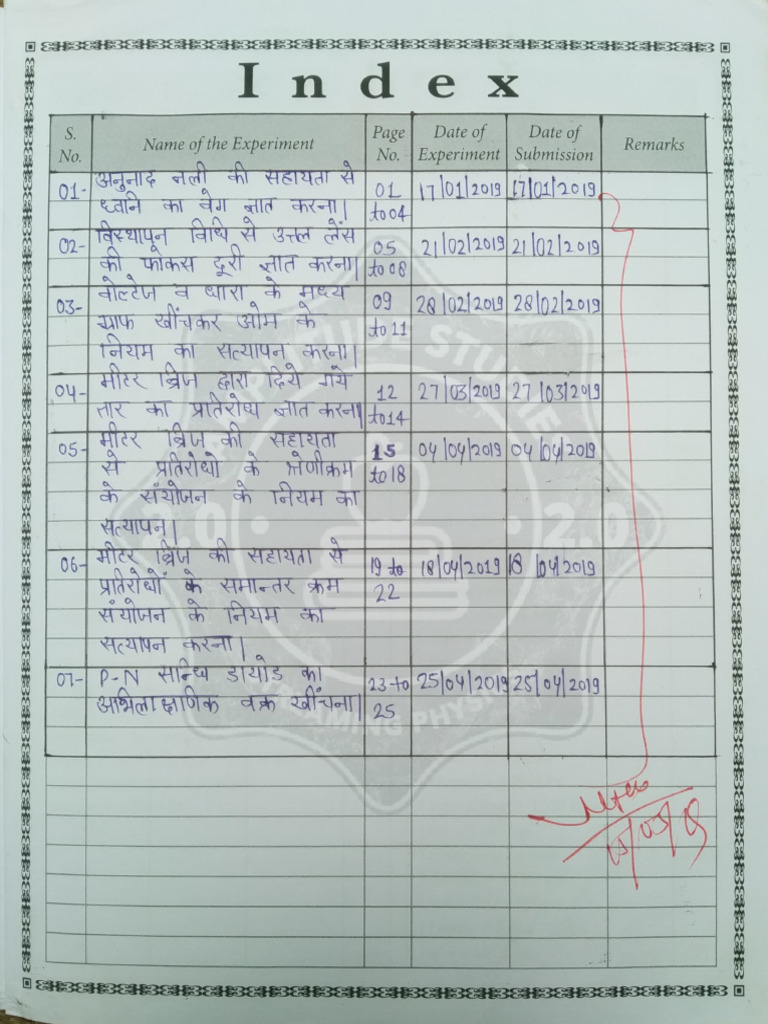 Index
S. No. Name of the Experiment Page No. Date of Experiment Date of Submission Remarks
01- अनुनाद नली की सहायता से 01 17/01/2019 17/01/2019
ध्वनि का वेग ज्ञात करना। to 04
02- विस्थापन विधि से उत्तल लेंस 05 21/02/2019 21/02/2019
की फोकस दूरी ज्ञात करना। to 08
03- वोल्टेज व धारा के मध्य 09 28/02/2019 28/02/2019
ग्राफ खींचकर ओम के to 11
नियम का सत्यापन करना।
04- मीटर ब्रिज द्वारा दिये गये 12 27/03/2019 27/03/2019
तार का प्रतिरोध ज्ञात करना। to 14
05- मीटर ब्रिज की सहायता 15 04/04/2019 04/04/2019
से प्रतिरोधो के श्रेणीक्रम to 18
के संयोजन के नियम का
सत्यापन।
06- मीटर ब्रिज की सहायता से 19 to 18/04/2019 18/04/2019
प्रतिरोधों के समान्तर क्रम 22
संयोजन के नियम का
सत्यापन करना।
07- P-N सन्धि डायोड का 23 to 25/04/2019 25/04/2019
अभिलाक्षणिक वक्र खींचना। 25
2.0 2.0